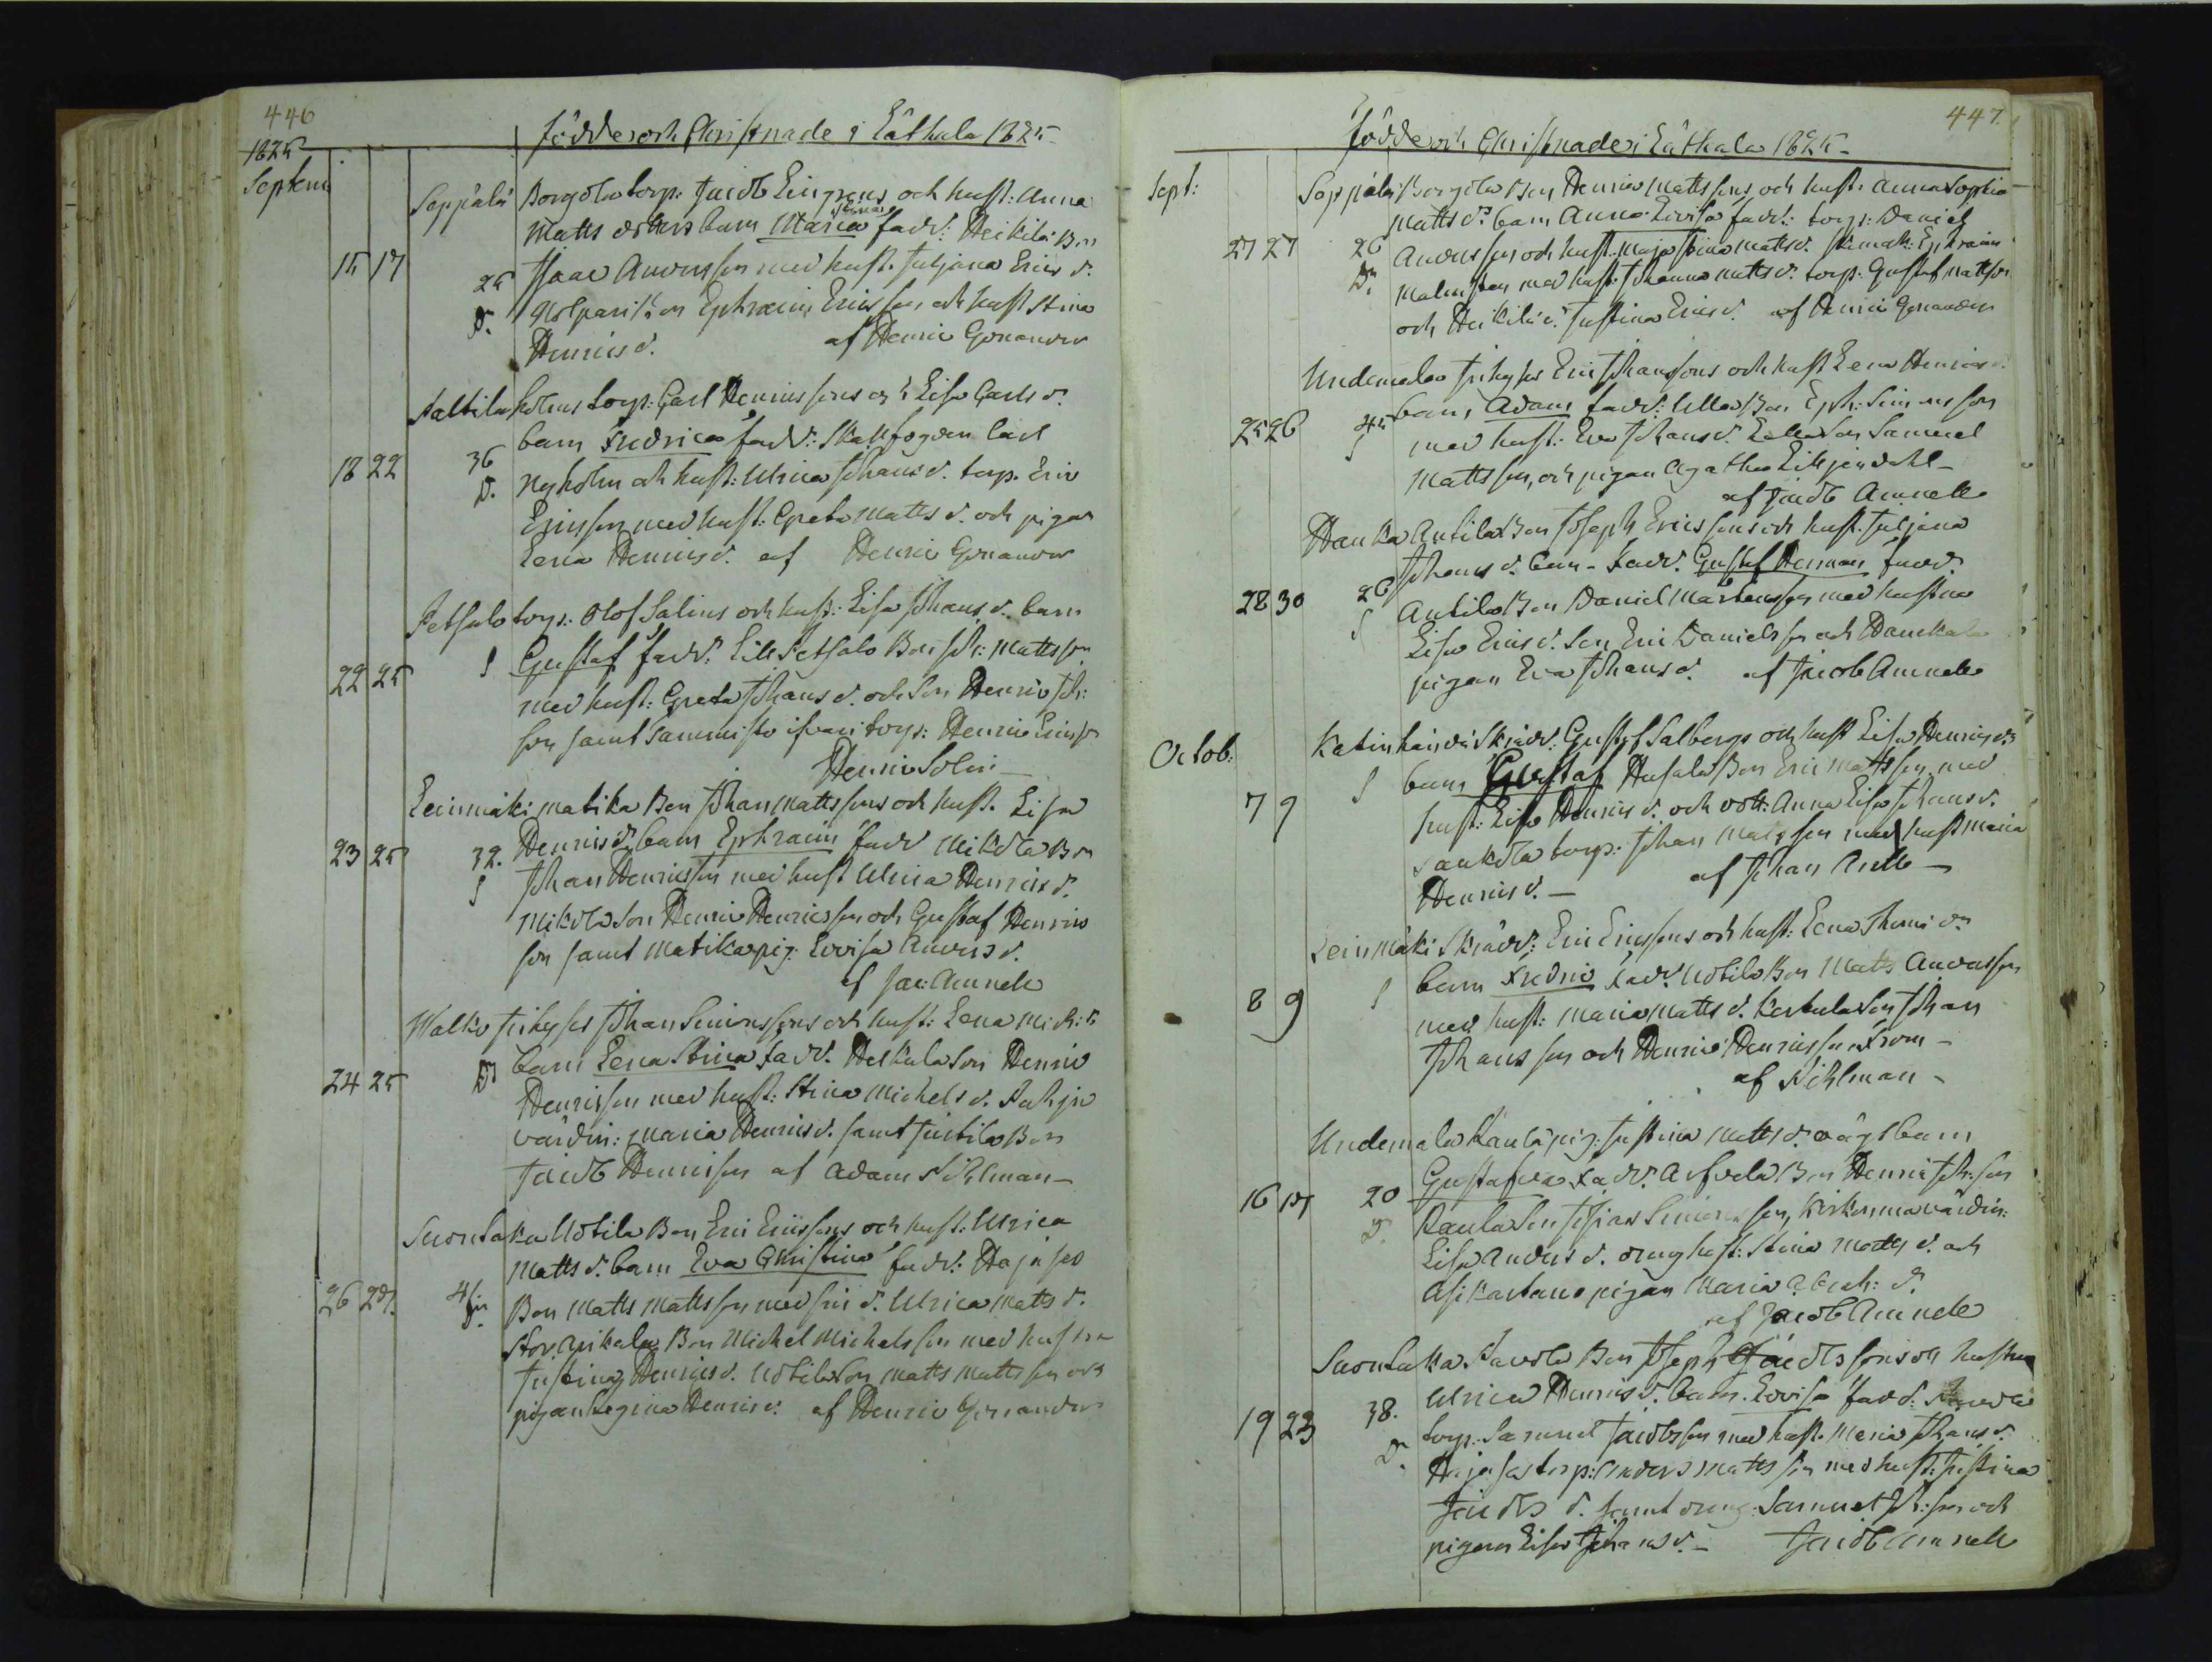 446
Födde och Christnade i Låthala 1825
1825
Septem
Seppälä Borgola torp: Jacob Lingrens och hust: Anna
Matts dotters barn Maria Stina fadd: Heikilä Bon
15 17 Isaac Andersson med hust. Juljana Erics d.
25 D. Bon Ephraim Ericsson och hust Stina
Henrics d. af Henric Gonander
Saltila holms torp: Carl Henricssons och Lisa Carls d.
barn Fredrica fadd: Skallfogden Carl
18 22 36 D. Nyholm och hust: Ulrica Johans d. torp. Eric
Ericsson med hust: Greta Matts d. och pigan
Lena Henrics d. af Henric Gonander
Petsalo torp: Olof Salins och hust: Lisa Johans d. barn
S Gustaf fadd: Lill Petsalo Bon Joh: Mattsson
22 25 med hust: Greta Johans d. och Son Henric Joh:
son samt Sammisto torp: Henric Ericss
Henric Solin
Leinmäki Matika Bon Johan Mattssons och hust. Lisa
23 25 32. Henrics d. barn Ephraim fadd Mikola Bon
S Johan Henricsson med hust Ulrica Henrics d.
Mikola Son Henric Henricsson och Gustaf Henric
son samt Matika pig: Lovisa Anders d.
af Jac: Amnell
Walko Johan Simonssons och hust: Lena Mich: d.
24 25 D barn Lena Stina fadd. Heikala Son Henric
Henricsson med hust: Stina Michels d.
värdin: Maria Henrics d. samt Juttila Bon
Jacob Henricsson af Adam Kihlman
Suontaka Uotila Bon Eric Ericssons och hust: Ulrica
Matts d. barn Eva Christina fadd: Hajaseo
26 27. D. Bon Matts Mattsson med sin d. Ulrica Matts d.
Stor Bon Michel Michelsson med hustru
Justina Henrics d. Uotila Son Matts Mattsson och
pigan Regina Henrics d. af Henric Gonander
447.
Födde och Christnade i Låthala 1825
Sept: Seppälä Borgola Bon Henric Mattssons och hust: Anna Sophia
Matts d. barn Anna Lovisa fadd: torp: Daniel
27 27 26 Andersson och hust. Maja Stina Matts d. Ephraim
D. Malmsten med hust: Johanna Matts d. torp: Gustaf Mattson
och Heikilä d. Justina Erics d. af Henric Gonander
Undemala Eric Johanssons och hust Lena Henrics d.
barn Adam fadd: Ulla Bon Eph: Simonsson
25 26 45 S med hust: Eva Johans d. Son Samuel
Mattsson, och pigan Agatha Liljendahl
af Jacob Amnell
Hauka Antila Bon Joseph Ericssons och hust. Juljana
Johans d. barn Gustaf Herman fadd
28 30 26 S Antila Bon Daniel Mårtensson med hustru
Lisa Erics d. Son Eric Danielsson och Hanckala
pigan Eva Johans d. af Jacob Amnell
Octob: Katinhändä Skrädd: Gustaf Salbergs och hust Lisa Henrics d.
S barn Gustaf Hasala Bon Eric Mattsson med
7 9 hust: Lisa Henrics d. och dott: Anna Lisa Johans d.
Saukola torp: Johan Matsson med hust Maria
Henrics d. af Johan Antell
Leinmäki Skrädd: Eric Ericssons och hust: Lena Thoms d.
S barn Fredric fadd. Uotila Bon Matts Andersson
8 9 med hust: Maria Matts d. Kertula Son Johan
Johansson och Henric Henricsson From
af Kihlman
Undemala Kaula pig: Justina Matts d. oägt barn
Gustafva fadd. Arfvela Bon Henric Joh:son
16 17 20 D. Kaula Son Johan Simonsson, värdin:
Lisa Anders d. dreng hust: Stina Matts d. och
Asikartano pigan Maria Abrah: d.
af Jacob Amnell
Suontaka Bon Joseph Jacobssons och hustru
Ulrica Henrics d. barn. Lovisa fadd:
19 23 38. D. torp: Samuel Jacobsson med hust. Maria Johans d.
Hajaseo torp: Anders Matts son med hust: Justina
Jacobs d. samt dreng Samuel Joh:son och
pigan Lisa Johans d. Jacob Amnell